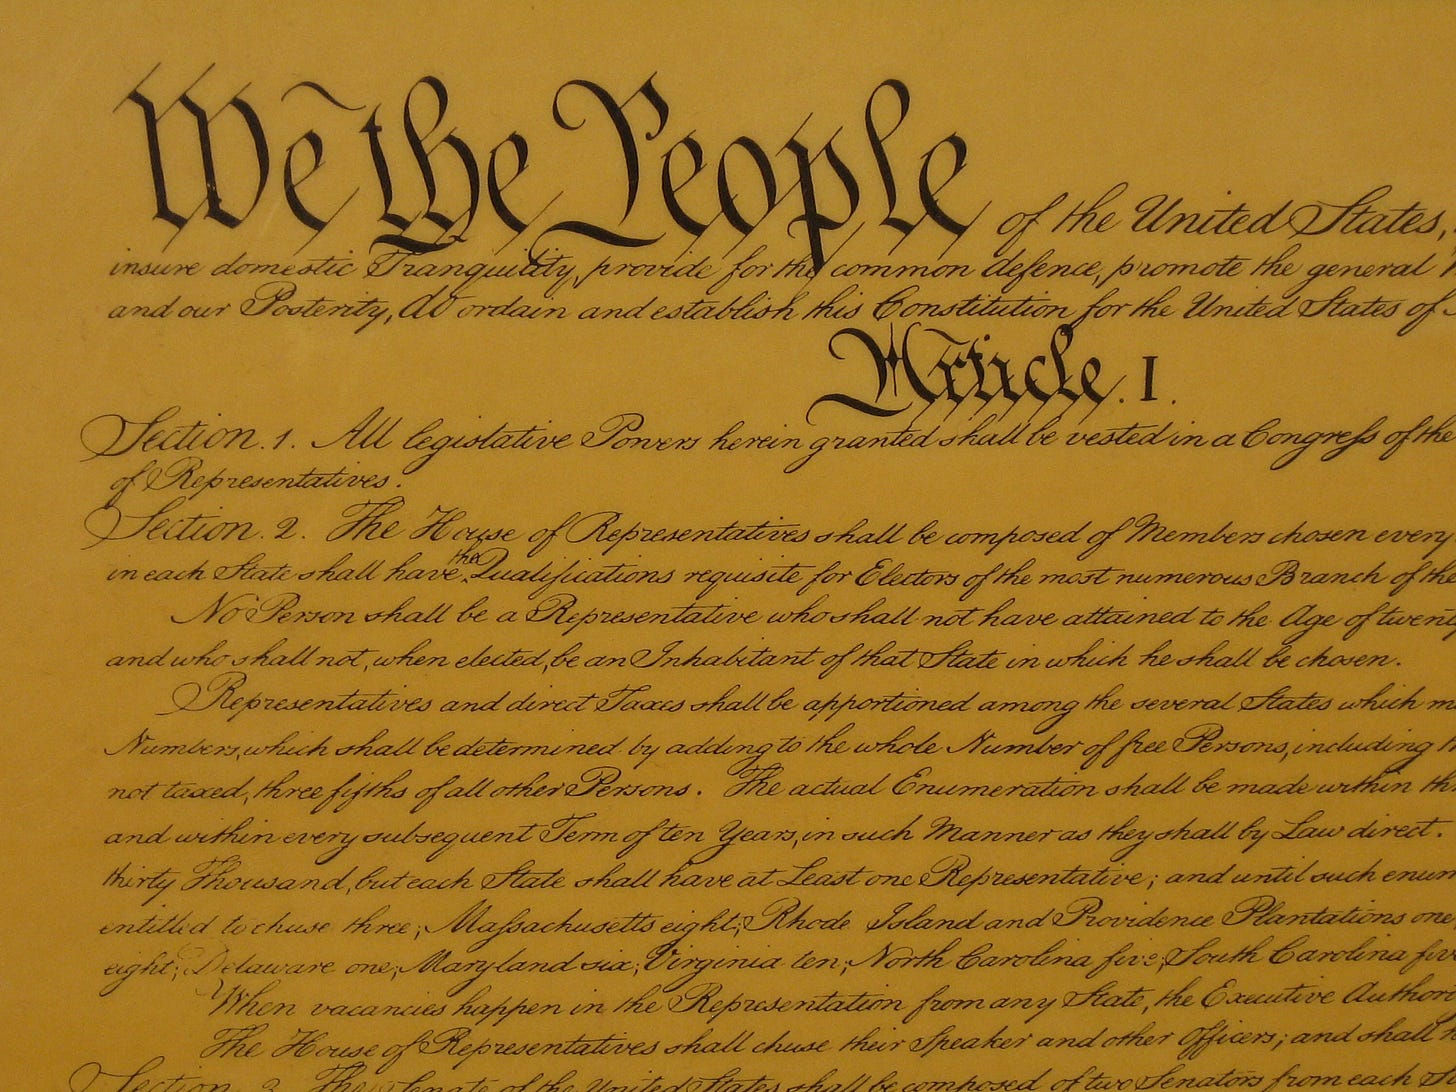 We the People of the United States,
insure domestic Tranquility, provide for the common defence, promote the general
and our Posterity, do ordain and establish this Constitution for the United States of
Article. I.
Section. 1. All legislative Powers herein granted shall be vested in a Congress of the
of Representatives.
Section. 2. The House of Representatives shall be composed of Members chosen every
in each State shall have the Qualifications requisite for Electors of the most numerous Branch of the
No Person shall be a Representative who shall not have attained to the Age of twent
and who shall not, when elected, be an Inhabitant of that State in which he shall be chosen.
Representatives and direct Taxes shall be apportioned among the several States which m
Numbers, which shall be determined by adding to the whole Number of free Persons, including th
not taxed, three fifths of all other Persons. The actual Enumeration shall be made within th
and within every subsequent Term of ten Years, in such Manner as they shall by Law direct.
thirty Thousand, but each State shall have at Least one Representative; and until such enum
entitled to chuse three, Massachusetts eight, Rhode Island and Providence Plantations one
eight, Delaware one, Maryland six, Virginia ten, North Carolina five, South Carolina five
When vacancies happen in the Representation from any State, the Executive Authori
The House of Representatives shall chuse their Speaker and other Officers; and shall h
Section. 3. The Senate of the United States shall be composed of two Senators from each S